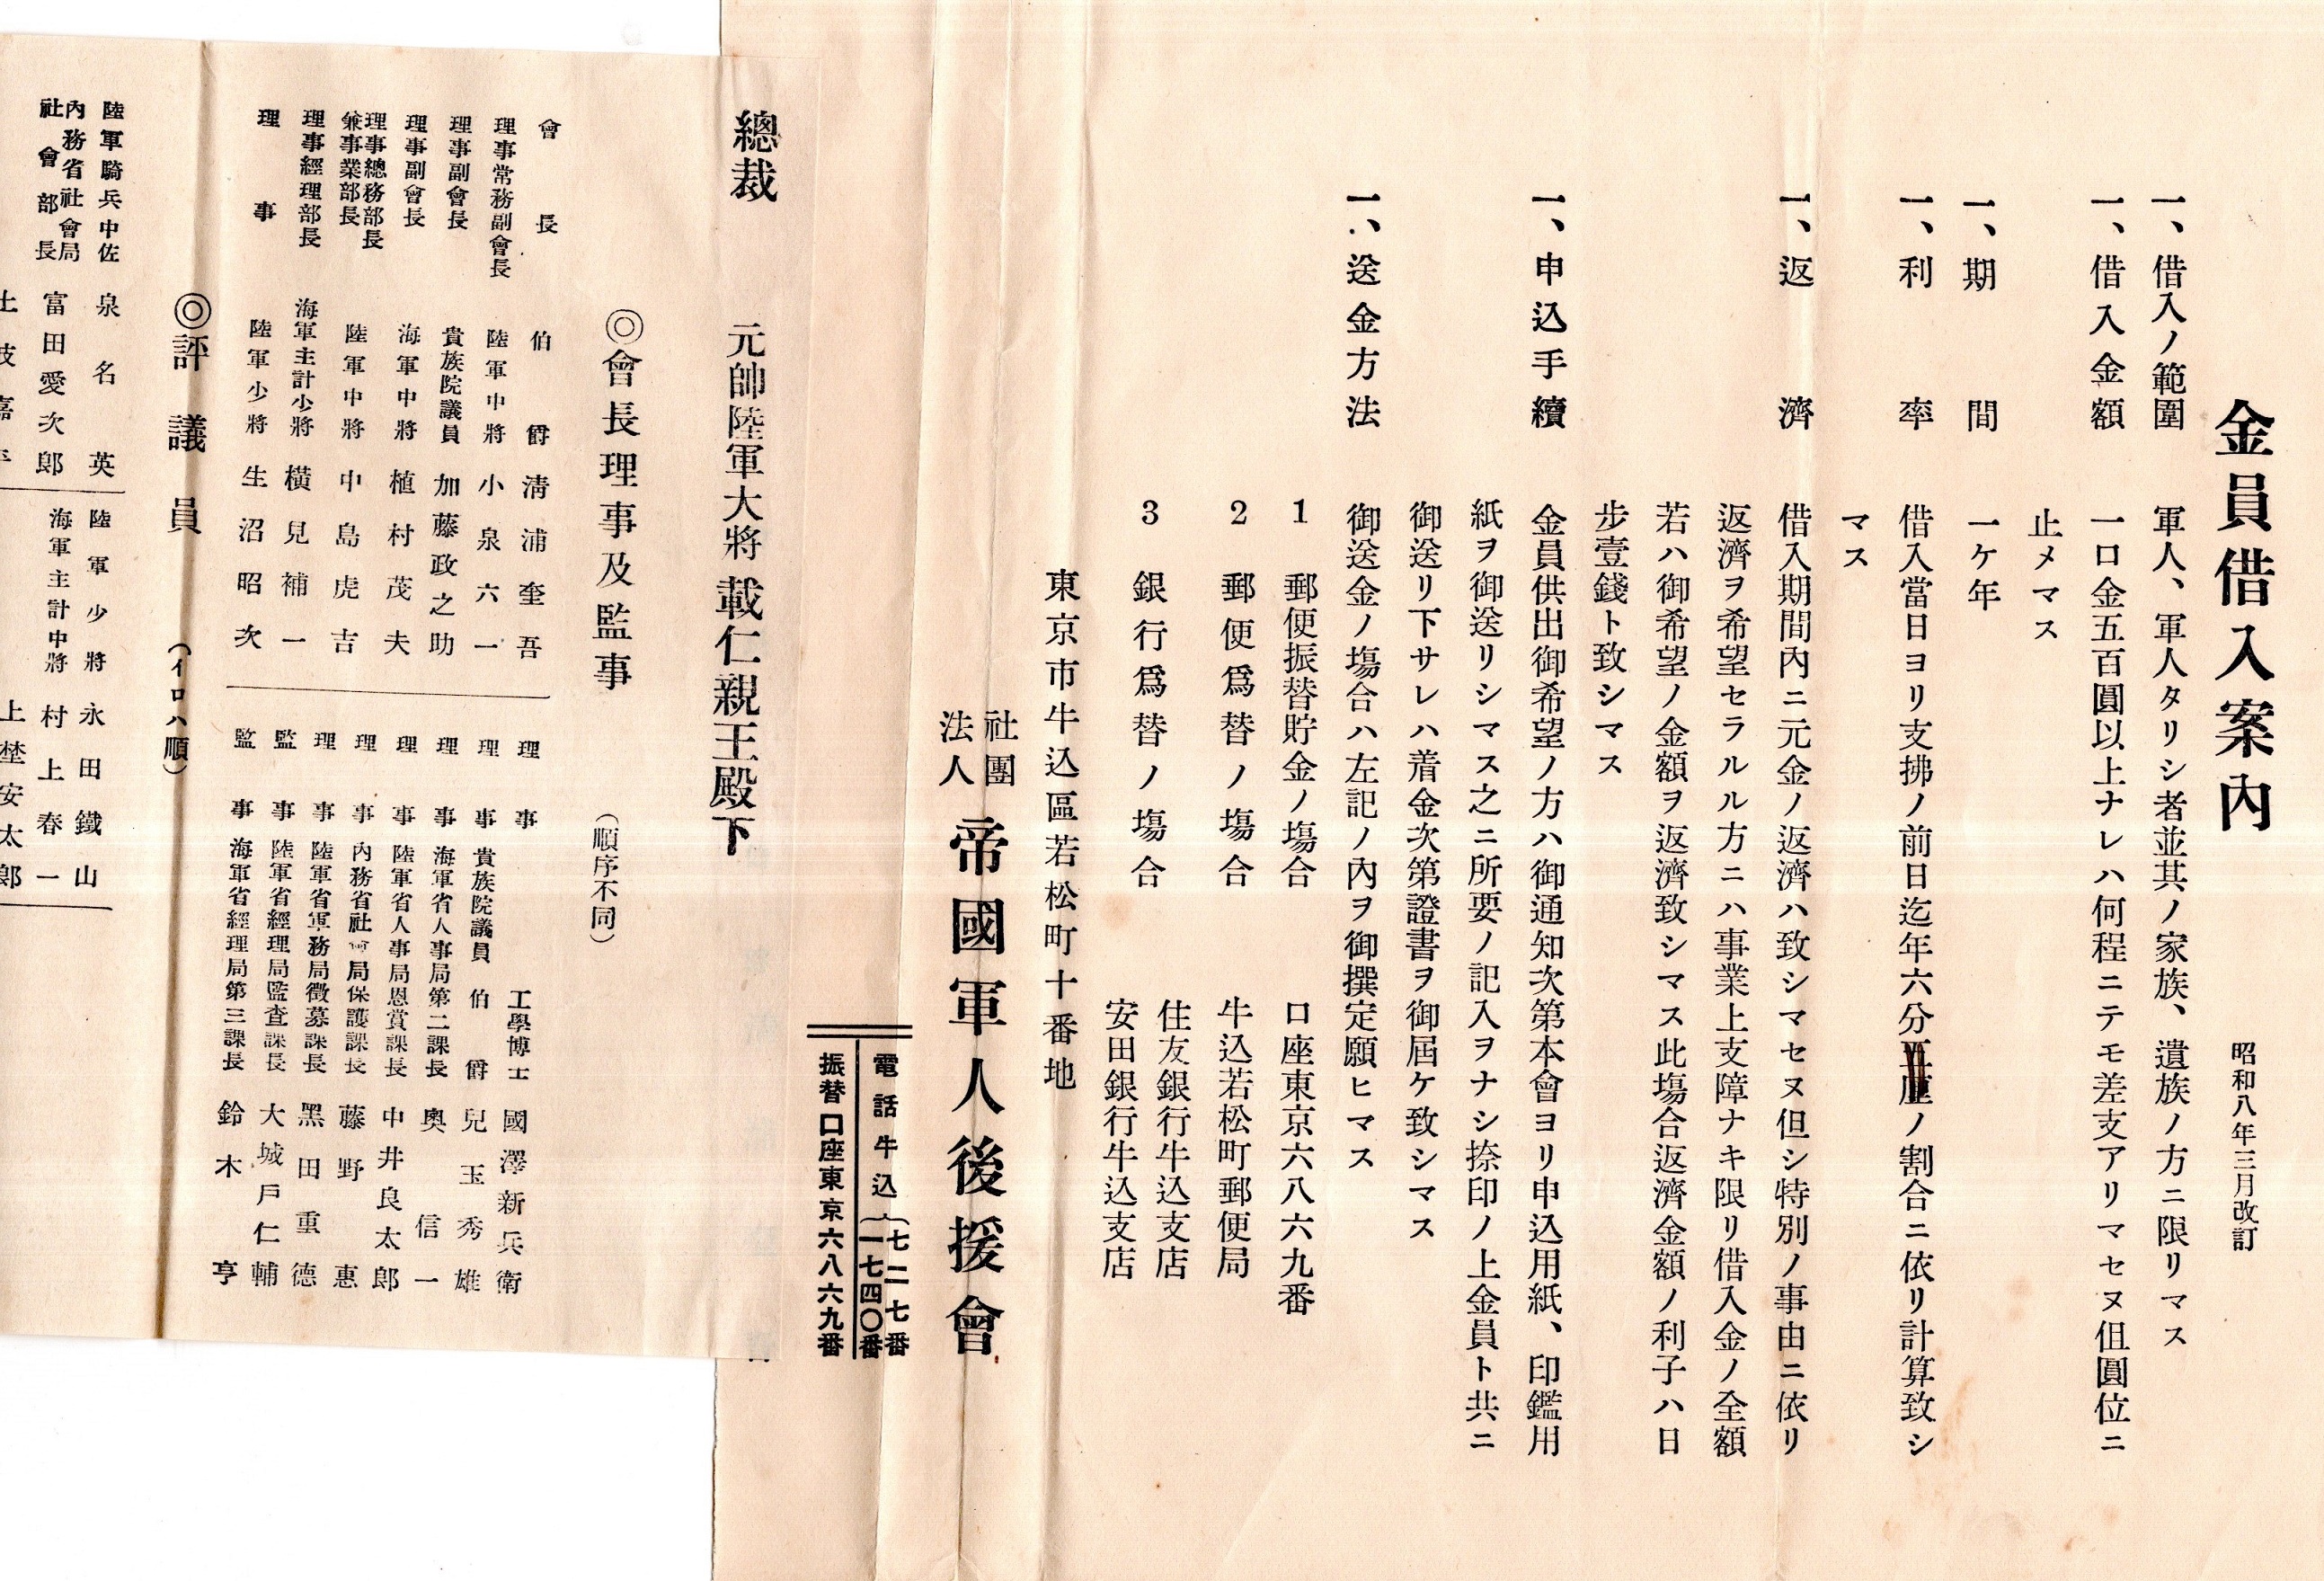 金員借入案内
昭和八年三月改訂
一、借入ノ範圍　軍人、軍人タリシ者並其ノ家族、遺族ノ方ニ限リマス
一、借入金額　一口金五百圓以上ナレハ何程ニテモ差支アリマセヌ但圓位ニ
止メマス
一、期間　一ケ年
一、利率　借入當日ヨリ支拂ノ前日迄年六分ノ割合ニ依リ計算致シ
マス
一、返濟　借入期間內ニ元金ノ返濟ハ致シマセヌ但シ特別ノ事由ニ依リ
返濟ヲ希望セラルル方ニハ事業上支障ナキ限リ借入金ノ全額
若ハ御希望ノ金額ヲ返濟致シマス此場合返濟金額ノ利子ハ日
步壹錢ト致シマス
一、申込手續　金員供出御希望ノ方ハ御通知次第本會ヨリ申込用紙、印鑑用
紙ヲ御送リシマス之ニ所要ノ記入ヲナシ捺印ノ上金員ト共ニ
御送リ下サレハ着金次第證書ヲ御屆ケ致シマス
一、送金方法　御送金ノ場合ハ左記ノ內ヲ御撰定願ヒマス
1　郵便振替貯金ノ場合　口座東京六八六九番
2　郵便爲替ノ場合　牛込若松町郵便局
3　銀行爲替ノ場合　住友銀行牛込支店
安田銀行牛込支店
東京市牛込區若松町十番地
社團法人　帝國軍人後援會
電話牛込（七二七番
（一七四〇番
振替口座東京六八六九番
總裁　元帥陸軍大將　載仁親王殿下
◎會長理事及監事　（順序不同）
會長　伯爵　淸浦奎吾
理事常務副會長　陸軍中將　小泉六一
理事副會長　貴族院議員　加藤政之助
理事副會長　海軍中將　植村茂夫
理事總務部長兼事業部長　陸軍中將　中島虎吉
理事經理部長　海軍主計少將　橫見補一
理事　陸軍少將　生沼昭次
理事　工學博士　國澤新兵衛
理事　貴族院議員　伯爵　兒玉秀雄
理事　海軍省人事局第二課長　奧信一
理事　陸軍省人事局恩賞課長　中井良太郎
理事　內務省社會局保護課長　藤野惠
理事　陸軍省軍務局徵募課長　黑田重德
監事　陸軍省經理局監査課長　大城戶仁輔
監事　海軍省經理局第三課長　鈴木亨
◎評議員　（イロハ順）
陸軍騎兵中佐　泉名英
內務省社會局社會部長　富田愛次郎
陸軍少將　永田鐵山
海軍主計中將　村上春一